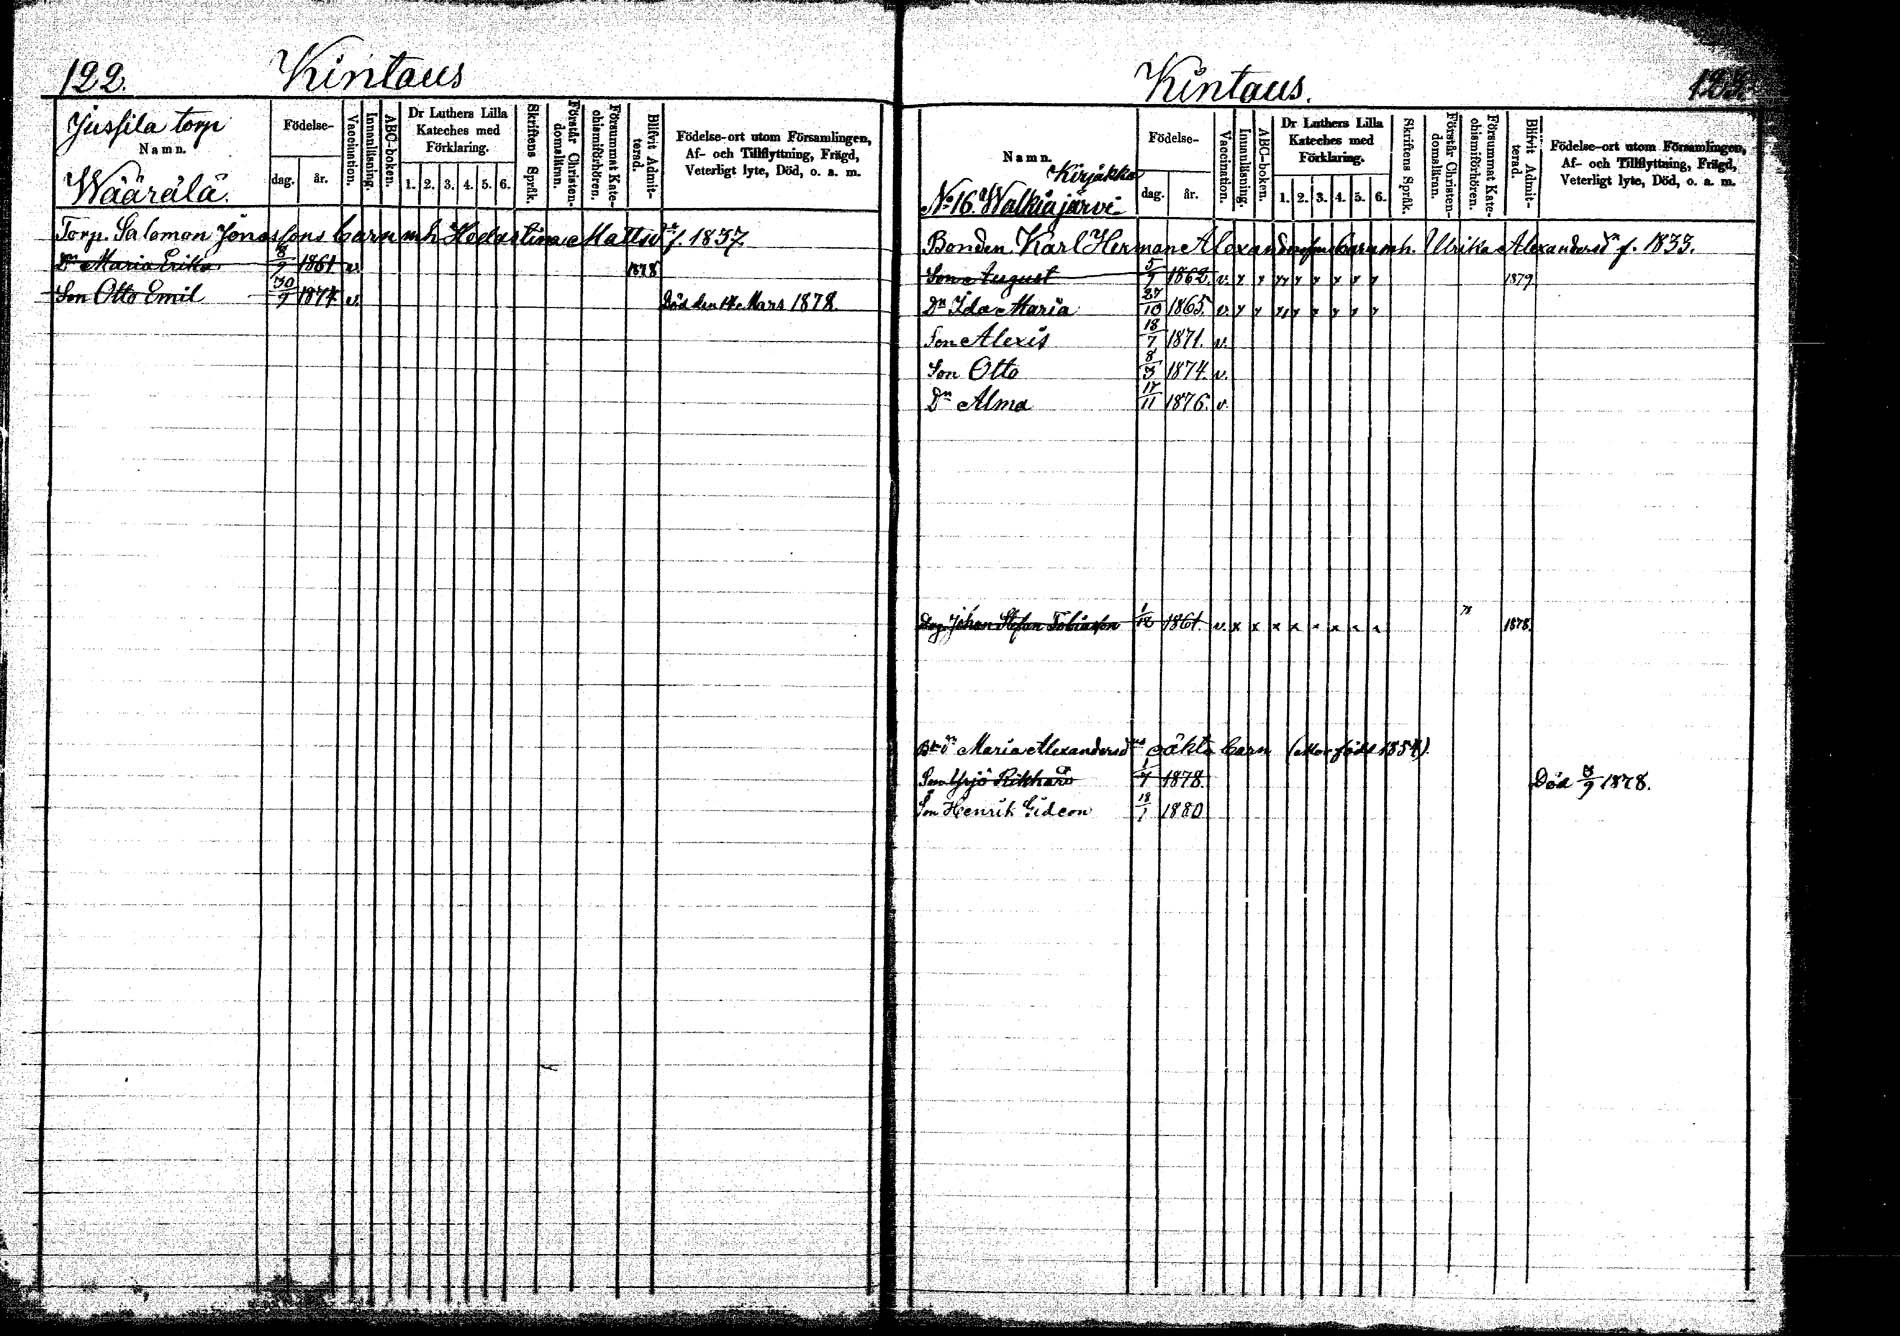 122.
Kintaus
Jussila torp
Namn.
Wäärälä.
Födelse-
dag.
år.
Vaccination.
Innanläsning.
ABC-boken.
Dr Luthers Lilla
Kateches med
Förklaring.
1. 2. 3. 4. 5. 6.
Skriftens Språk.
Förstår Christen-
domsläran.
Försummat Kate-
chismiförhören.
Blifvit Admit-
terad.
Födelse-ort utom Församlingen,
Af- och Tillflyttning, Frägd,
Veterligt lyte, Död, o. a. m.
Torp. Salomon Jonassons barn mh. Hedastina Mattsdr f. 1837
Dr Maria Erika 1861 v. 1878
Son Otto Emil 30/9 1874 v. Död den 14 Mars 1878.
Kintaus.
123.
Namn.
Kirjakka
No 16. Walkiajärvi
Födelse-
dag.
år.
Vaccination.
Innanläsning.
ABC-boken.
Dr Luthers Lilla
Kateches med
Förklaring.
1. 2. 3. 4. 5. 6.
Skriftens Språk.
Förstår Christen-
domsläran.
Försummat Kate-
chismiförhören.
Blifvit Admit-
terad.
Födelse-ort utom Församlingen,
Af- och Tillflyttning, Frägd,
Veterligt lyte, Död, o. a. m.
Bonden Karl Herman Alexanderssons barn mh. Ulrika Alexandersdr f. 1833.
Son August 5/9 1862. v. 1879
Dr Ida Maria 27/10 1865. v.
Son Alexis 18/7 1871. v.
Son Otto 8/3 1874. v.
Dr Alma 17/11 1876. v.
Drg. Johan Stefan Tobiasson 1/12 1861. v. x x x x x x x x 78 1878.
Bdr Maria Alexandersdrs oäkta barn (Mor född 1854).
Son Yrjö Rikhard 1/7 1878. Död 3/9 1878.
Son Henrik Gideon 18/1 1880